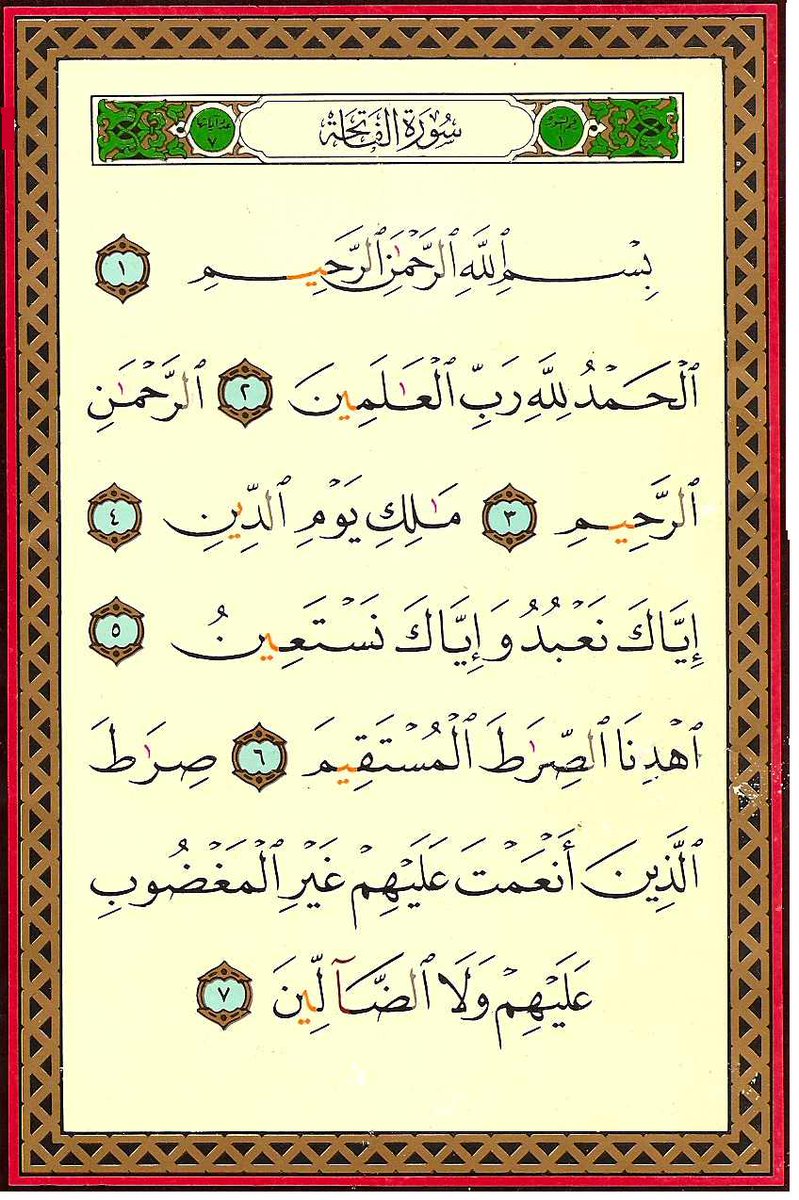 ترتيبها ١
سُورَةُ الفَاتِحَة
عدد آياتها ٧
بِسْمِ ٱللَّهِ ٱلرَّحْمَٰنِ ٱلرَّحِيمِ ١
ٱلْحَمْدُ لِلَّهِ رَبِّ ٱلْعَٰلَمِينَ ٢ ٱلرَّحْمَٰنِ
ٱلرَّحِيمِ ٣ مَٰلِكِ يَوْمِ ٱلدِّينِ ٤
إِيَّاكَ نَعْبُدُ وَإِيَّاكَ نَسْتَعِينُ ٥
ٱهْدِنَا ٱلصِّرَٰطَ ٱلْمُسْتَقِيمَ ٦ صِرَٰطَ
ٱلَّذِينَ أَنْعَمْتَ عَلَيْهِمْ غَيْرِ ٱلْمَغْضُوبِ
عَلَيْهِمْ وَلَا ٱلضَّآلِّينَ ٧